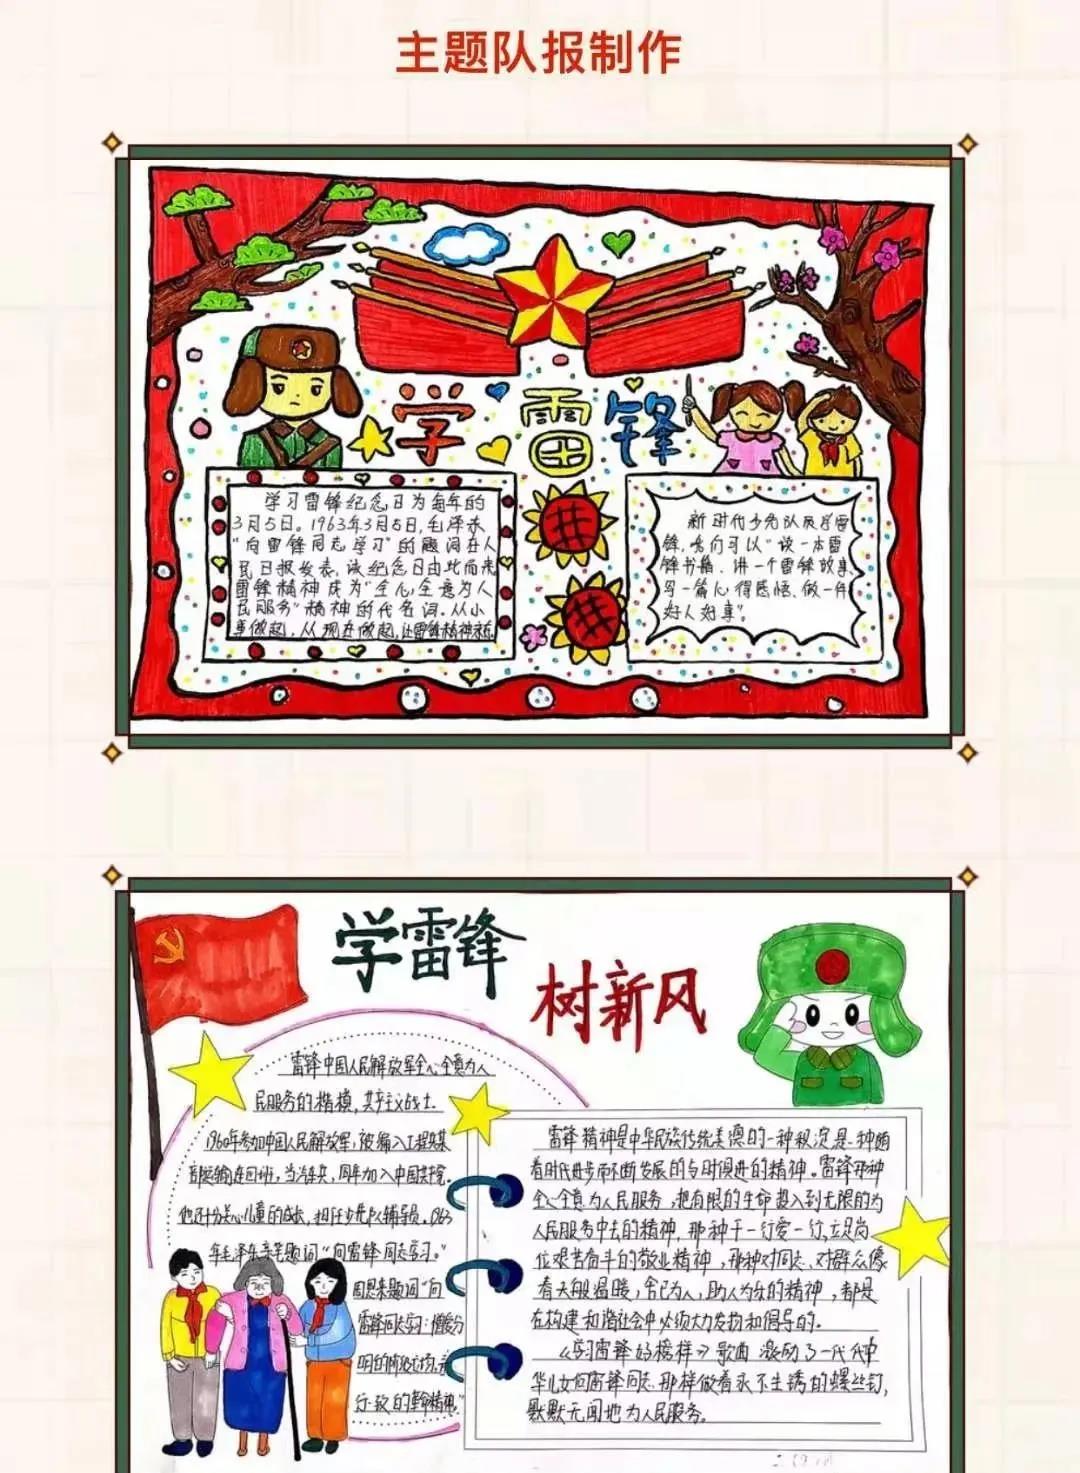 主题队报制作
学雷锋
学习雷锋纪念日为每年的
3月5日。1963年3月5日，毛泽东
"向雷锋同志学习"的题词在人
民日报发表，该纪念日由此而来
雷锋精神成为"全心全意为人
民服务"精神的代名词。从小
事做起，从现在做起，让雷锋精神
新时代少先队员学雷
锋，咱们可以"读一本雷
锋书籍、讲一个雷锋故事、
写一篇心得感悟、做一件
好人好事"。
学雷锋
树新风
雷锋中国人民解放军全心全意为人
民服务的楷模，共产主义战士.
1960年参加中国人民解放军，被编入工程兵某
部运输连四班，当汽车兵，同年加入中国共产党.
他还十分关心儿童的成长，担任少先队辅导员.1963
年毛泽东亲笔题词"向雷锋同志学习。"
周恩来题词"向
雷锋同志学习：憎爱分
明的阶级立场，言
行一致的革命精神."
雷锋精神是中华民族传统美德的一种积淀，是一种随
着时代进步而不断发展的与时俱进的精神。雷锋那种
全心全意为人民服务，把有限的生命投入到无限的为
人民服务中去的精神，那种干一行爱一行，立足岗
位艰苦奋斗的敬业精神，那种对同志、对群众像
春天般温暖，舍己为人，助人为乐的精神，都是
在构建和谐社会中必须大力发扬和倡导的。
《学习雷锋好榜样》歌曲激励了一代代中
华儿女向雷锋同志那样做着永不生锈的螺丝钉，
默默无闻地为人民服务。